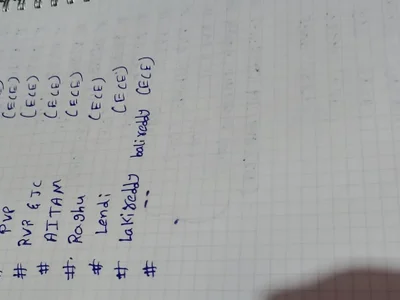 PVP (ECE)
# RVR & JC (ECE)
# AITAM (ECE)
# Raghu (ECE)
# Lendi (ECE)
# Lakireddy balireddy (ECE)
# " (ECE)